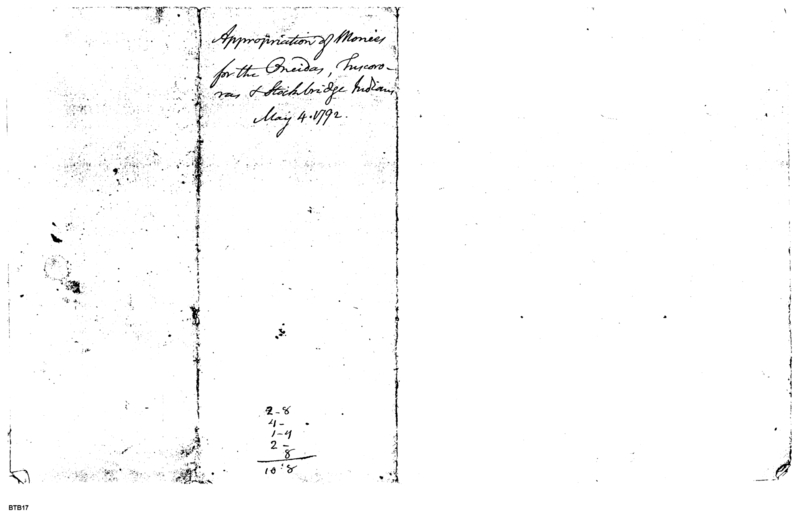 Appropriation of Monies
for the Oneidas, Tuscoro-
ras & Stockbridge Indians
May 4. 1792.
2-8
4-
1-4
2-
8
10:8
BTB17